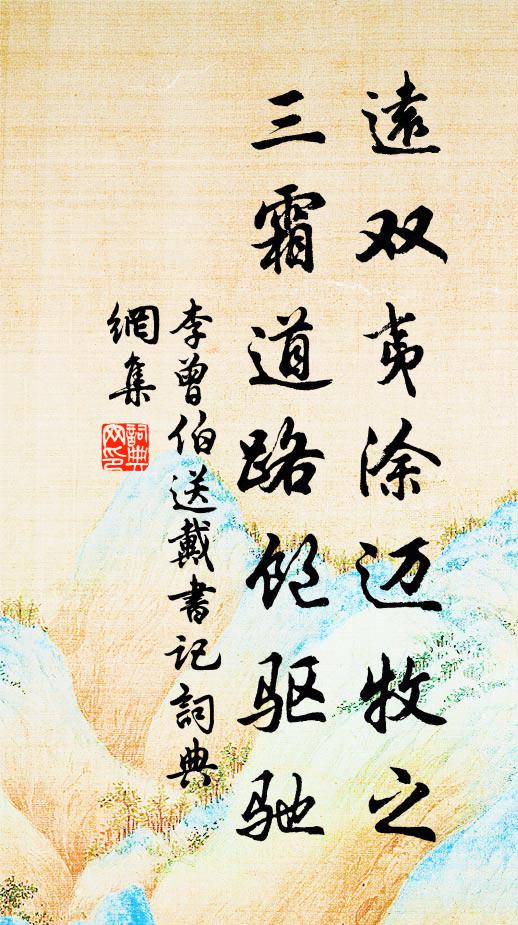 遠双夷涂迈牧之
三霜道路饱驱驰
李曾伯送戴書记詞典
網集
詞典网印